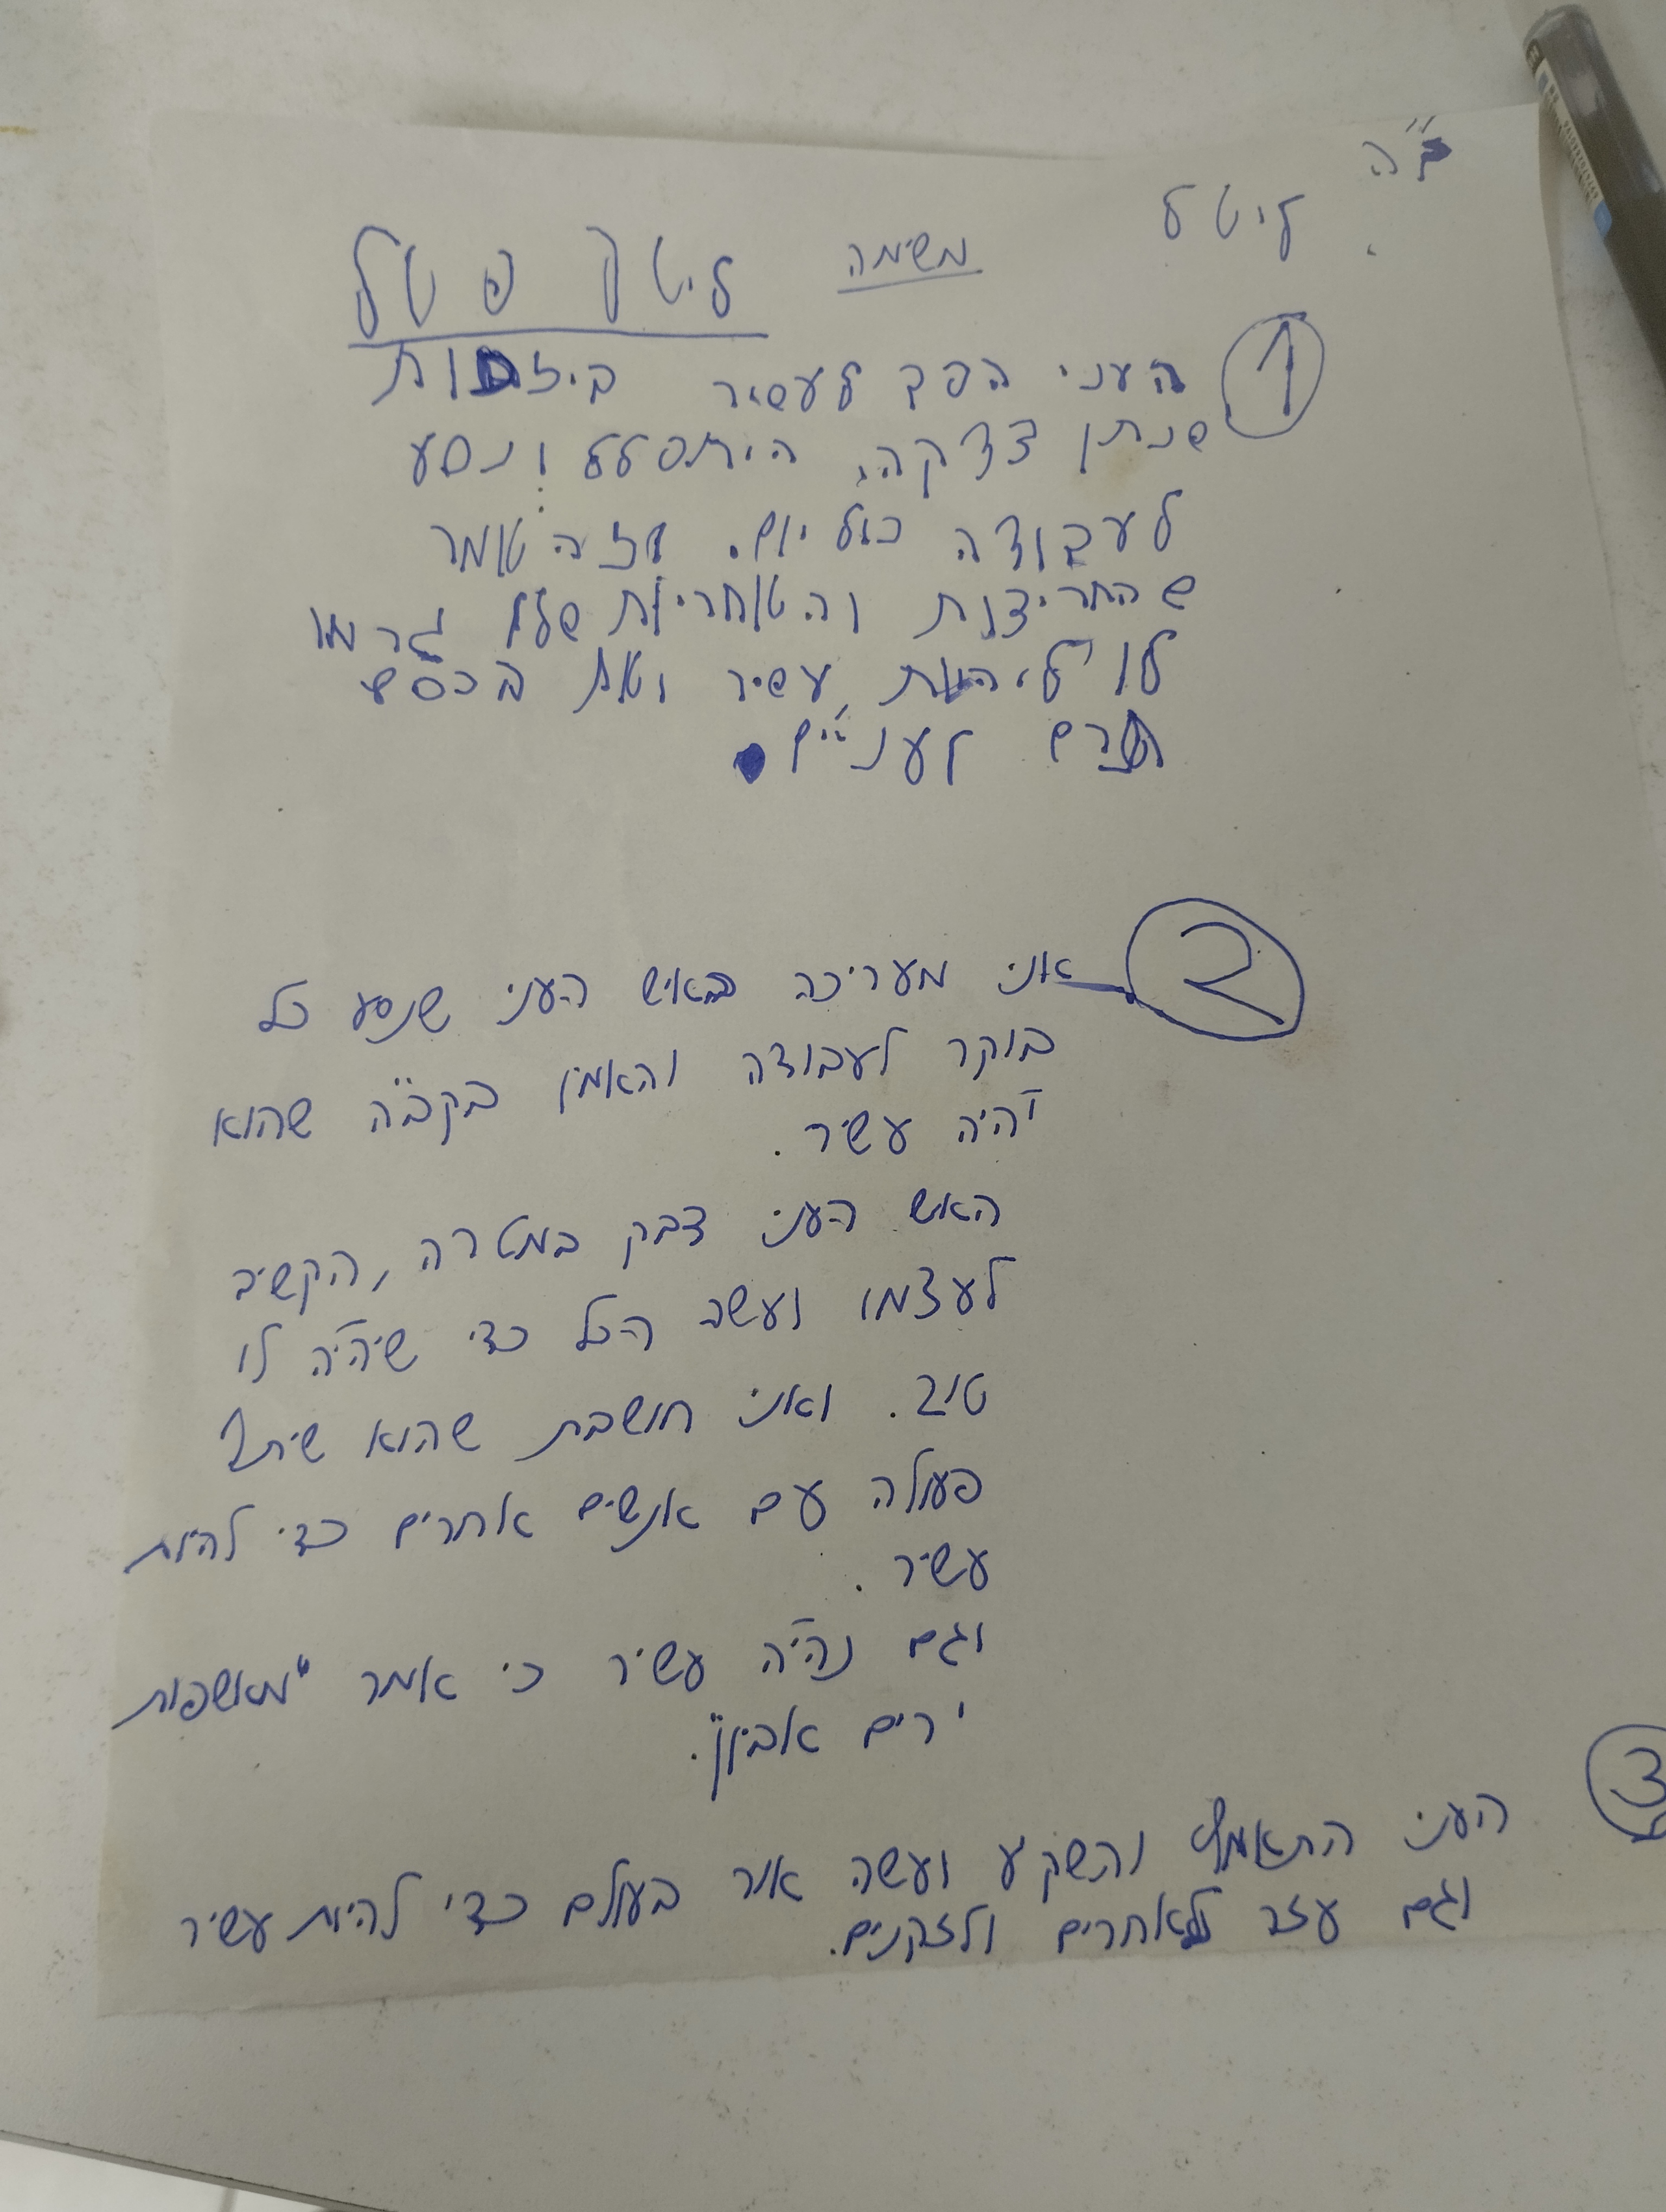 ב"ה
ליטל
משימה ליטל פטל
① העני הפך לעשיר ביזכות
שנתן צדקה, היתפלל ונסע
לעבודה כול יום. וזה אומר
שהחריצות והאחריות שלו גרמו
לו ליהיות עשיר ואת הכסף
תרם לעניים.
② אני מעריכה באיש העני שנסע כל
בוקר לעבודה והאמין בקב"ה שהוא
יהיה עשיר.
האש העני דבק במטרה, הקשיב
לעצמו ועשה הכל כדי שיהיה לו
טוב. ואני חושבת שהוא שיתף
פעולה עם אנשים אחרים כדי להיות
עשיר.
וגם נהיה עשיר כי אמר "מאשפות
ירים אביון".
③ העני התאמץ והשקיע ועשה אור בעולם כדי להיות עשיר
וגם עזר לאחרים ולזקנים.